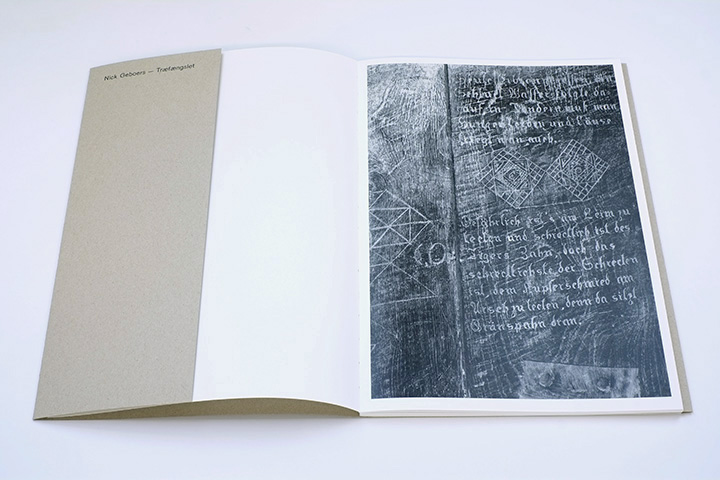 Nick Geboers — Træfængslet
Wasser folgte da
muß man
Hunger leiden und Läuse
kriegt man auch.
Gefährlich ist's am Leim zu
lecken und schrecklich ist des
Tigers Zahn, doch das
schrecklichste der Schrecken
ist, dem Kupferschmied am
Arsch zu lecken, denn da sitzt
Grünspahn dran.